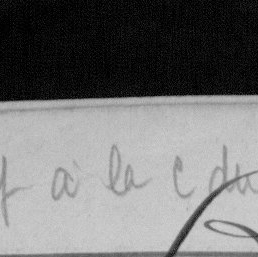 à la C du